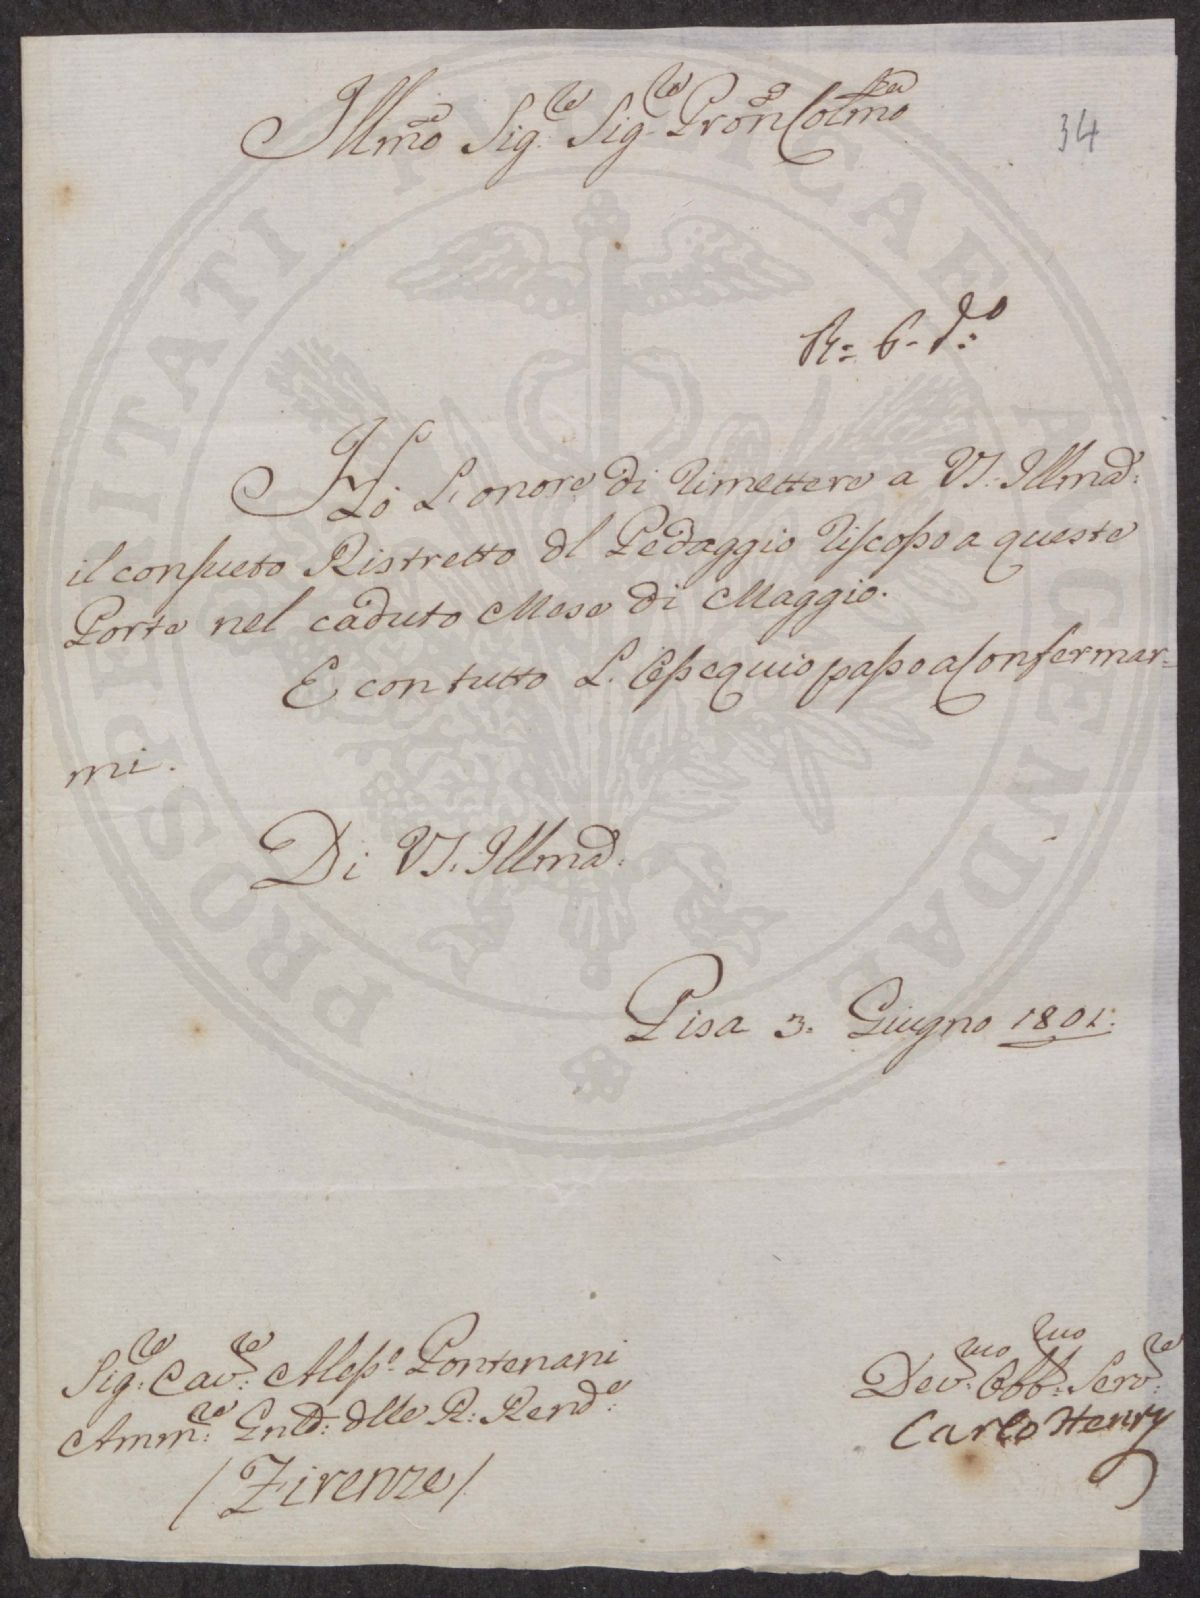 34
Illmo Sigre Sigre Pron Colmo
R: 6. do
Ho L'onore di rimettere a VS. Illma:
il consueto Ristretto dl Pedaggio riscosso a queste
Porte nel caduto Mese di Maggio.
E con tutto L'Ossequio passo a Confermar=
mi.
Di VS. Illma:
Pisa 3. Giugno 1801.
Sigre: Cavre: Alesso. Pontenani
Ammre: Gnle: dlle R: Rende:
/ Firenze /
Devmo: Obbmo: Servre:
Carlo Henry
PROSPERITATI PUBLICAE AUGENDAE